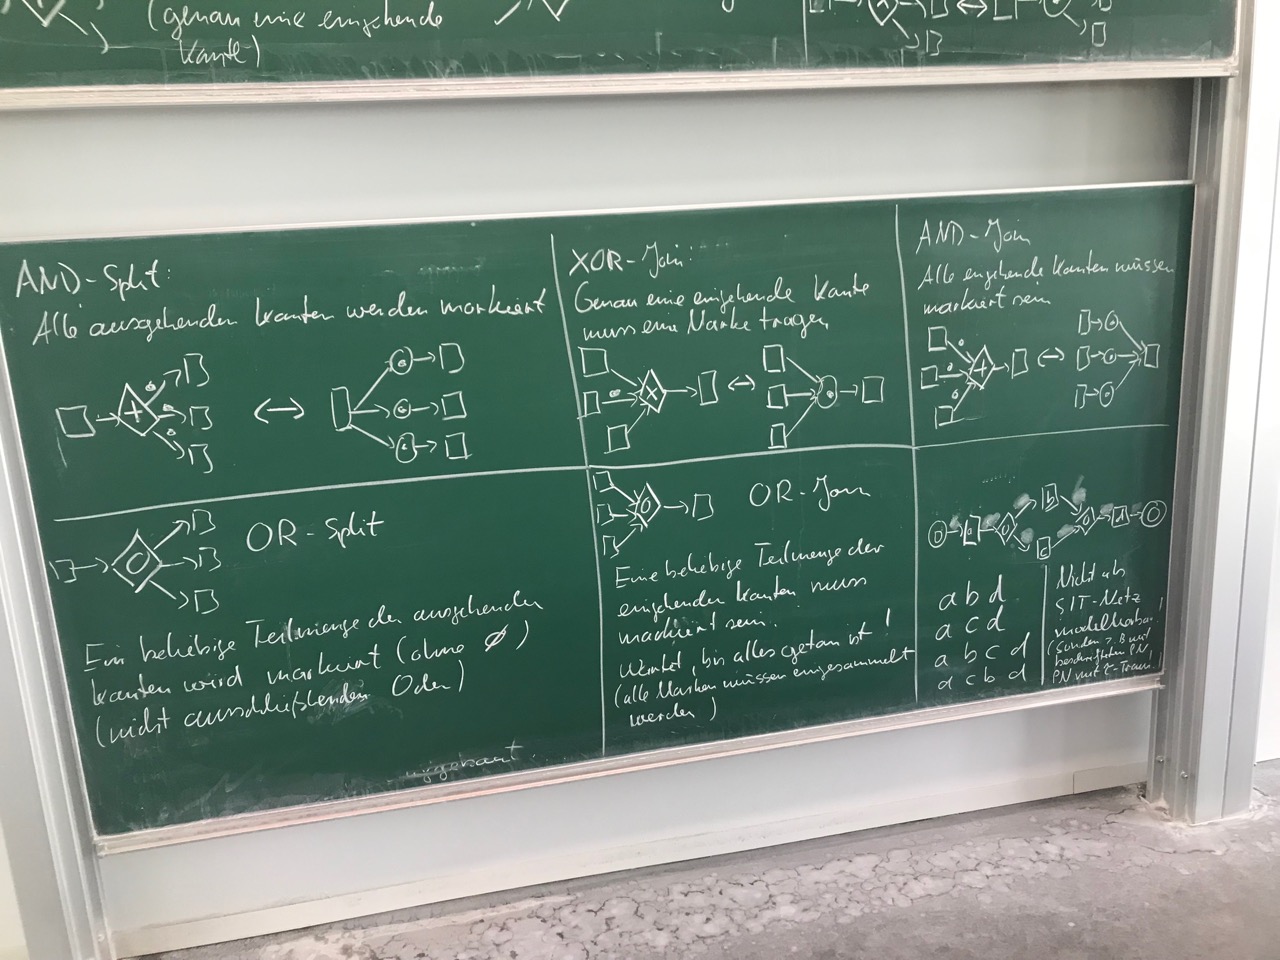 (genau eine eingehende
Kante)
AND-Split:
Alle ausgehenden Kanten werden markiert
+
XOR-Join:
Genau eine eingehende Kante
muss eine Marke tragen
X
AND-Join
Alle eingehende Kanten müssen
markiert sein
+
O
OR-Split
Ein beliebige Teilmenge der ausgehenden
Kanten wird markiert (ohne ∅)
(nicht ausschließenden Oder)
O
OR-Join
Eine beliebige Teilmenge der
eingehenden Kanten muss
markiert sein.
Wartet, bis alles getan ist!
(alle Marken müssen eingesammelt
werden)
a b c d
a b d
a c d
a b c d
a c b d
Nicht als
S/T-Netz
modellierbar!
(sondern z.B. mit
beschrifteten PN,
PN mit τ-Trans.)